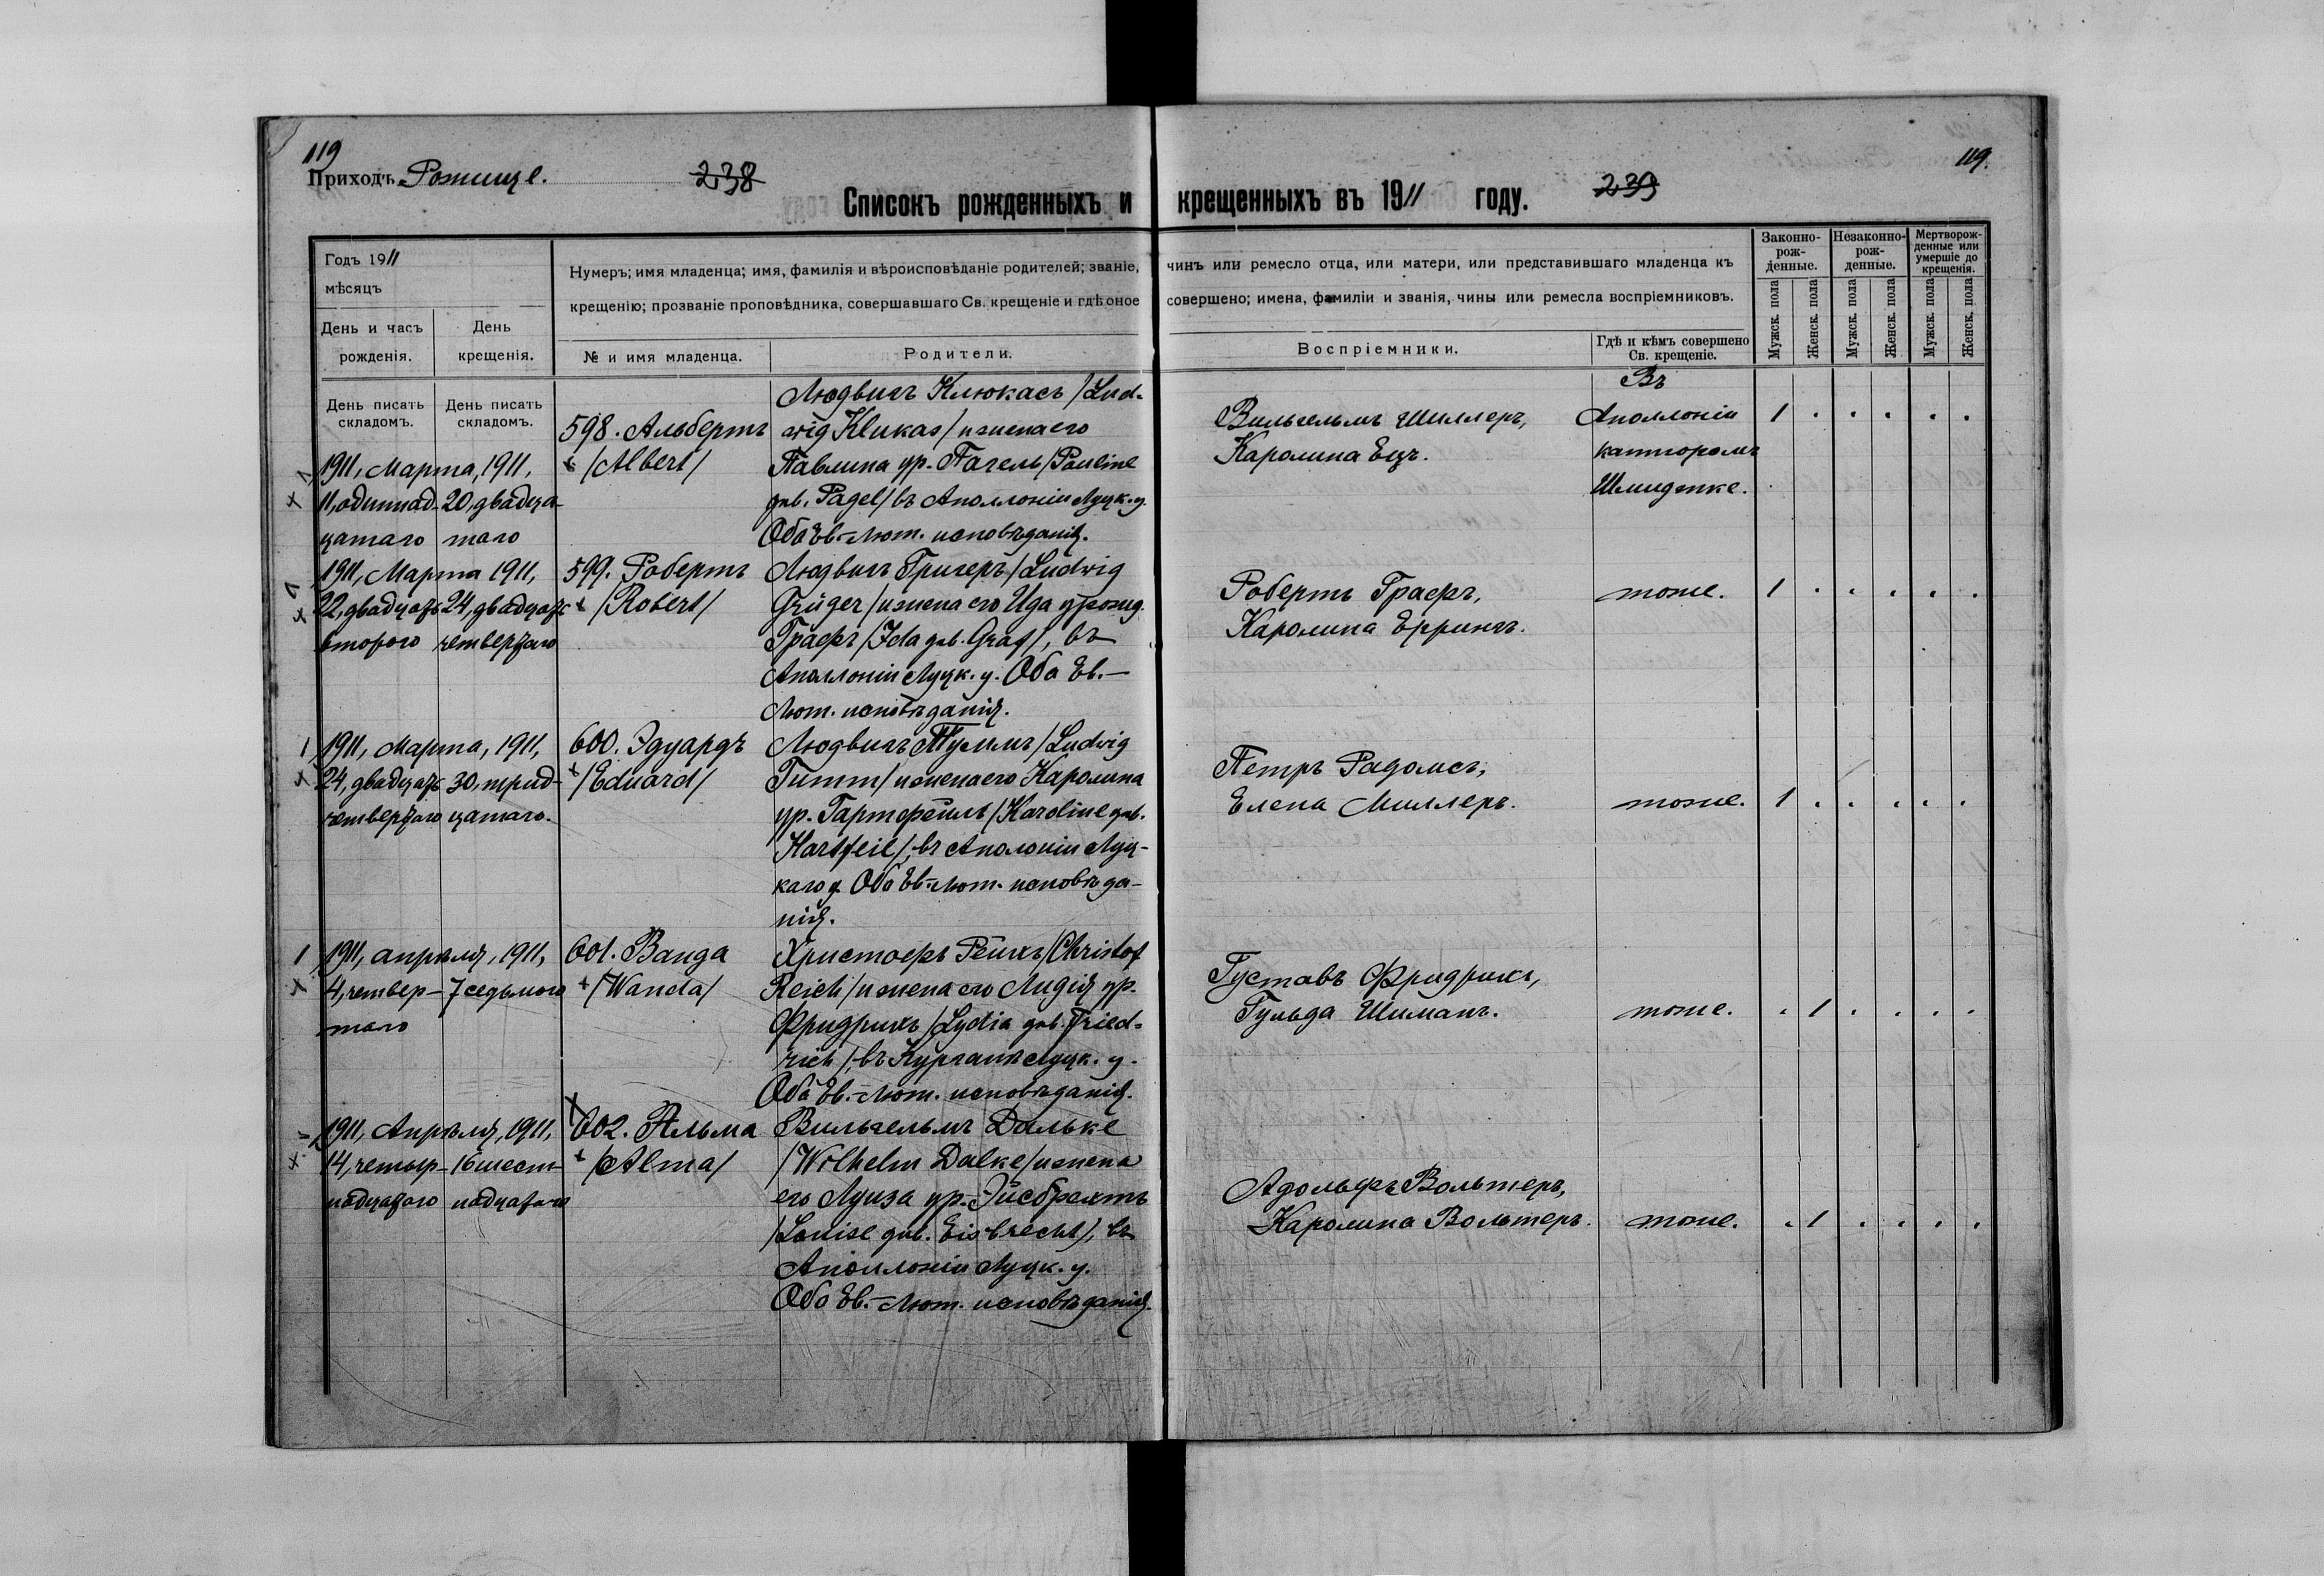 119
Приходъ Рожище.
238
239
119.
Списокъ рожденныхъ и крещенныхъ въ 1911 году.
Годъ 1911
мѣсяцъ
День и часъ рожденія.
День крещенія.
Нумеръ; имя младенца; имя, фамилія и вѣроисповѣданіе родителей; званіе, чинъ или ремесло отца, или матери, или представившаго младенца къ
крещенію; прозваніе проповѣдника, совершавшаго Св. крещеніе и гдѣ оное совершено; имена, фамиліи и званія, чины или ремесла воспріемниковъ.
№ и имя младенца.
Родители.
Воспріемники.
Гдѣ и кѣмъ совершено
Св. крещеніе.
Законно-
рож-
денные.
Незаконно-
рож-
денные.
Мертворож-
денные или
умершіе до
крещенія.
Мужск. пола
Женск. пола
Мужск. пола
Женск. пола
Мужск. пола
Женск. пола
День писать
складомъ.
День писать
складомъ.
1911, Марта, 1911,
11, одиннад- 20, двадца-
цатаго таго
598. Альбертъ
/Albert/
Людвигъ Клюкасъ /Lud-
wig Klukas/ и жена его
Павлина ур. Пагель /Pauline
geb. Pagel/ въ Аполлоніи Луцк. у.
Оба Ев.-Лют. исповѣданія.
Вильгельмъ Шиллеръ,
Каролина Ецъ.
Въ
Аполлоніи
канторомъ
Шмидтке.
1 . . . . .
1911, Марта 1911,
22, двадцать 24, двадцать
второго четвертаго
599. Робертъ
/Robert/
Людвигъ Григеръ /Ludwig
Grüger/ и жена его Ида урожд.
Графъ /Ida geb. Graf/, въ
Аполлоніи Луцк. у. Оба Ев.-
Лют. исповѣданія.
Робертъ Графъ,
Каролина Еррингъ.
тоже.
1 . . . . .
1911, Марта, 1911,
24, двадцать 30, трид-
четвертаго цатаго.
600. Эдуардъ
/Eduard/
Людвигъ Тиммъ /Ludwig
Timm/ и жена его Каролина
ур. Гартфейль /Karoline geb.
Hartfeil/, въ Аполоніи Луц-
каго у. Оба Ев.-Лют. исповѣда-
нія.
Петръ Радомсъ,
Елена Миллеръ.
тоже.
1 . . . . .
1911, апрѣля, 1911,
4, четвер- 7 седьмого
таго
601. Ванда
/Wanda/
Христофъ Рейхъ /Christof
Reich/ и жена его Лидія ур.
Фридрихъ /Lydia geb. Fried-
rich/, въ Курганѣ Луцк. у.
Оба Ев.-Лют. исповѣданія.
Густавъ Фридрихъ,
Гульда Шиманъ.
тоже.
. 1 . . . .
1911, Апрѣля, 1911,
14, четыр- 16 шест-
надцатаго надцатаго
602. Альма
/Alma/
Вильгельмъ Дальке
/Wilhelm Dalke/ и жена
его Луиза ур. Эйсбрехтъ
/Louise geb. Eisbrecht/, въ
Аполлоніи Луцк. у.
Оба Ев.-Лют. исповѣданія.
Адольфъ Вольтеръ,
Каролина Вольтеръ.
тоже.
. 1 . . . .